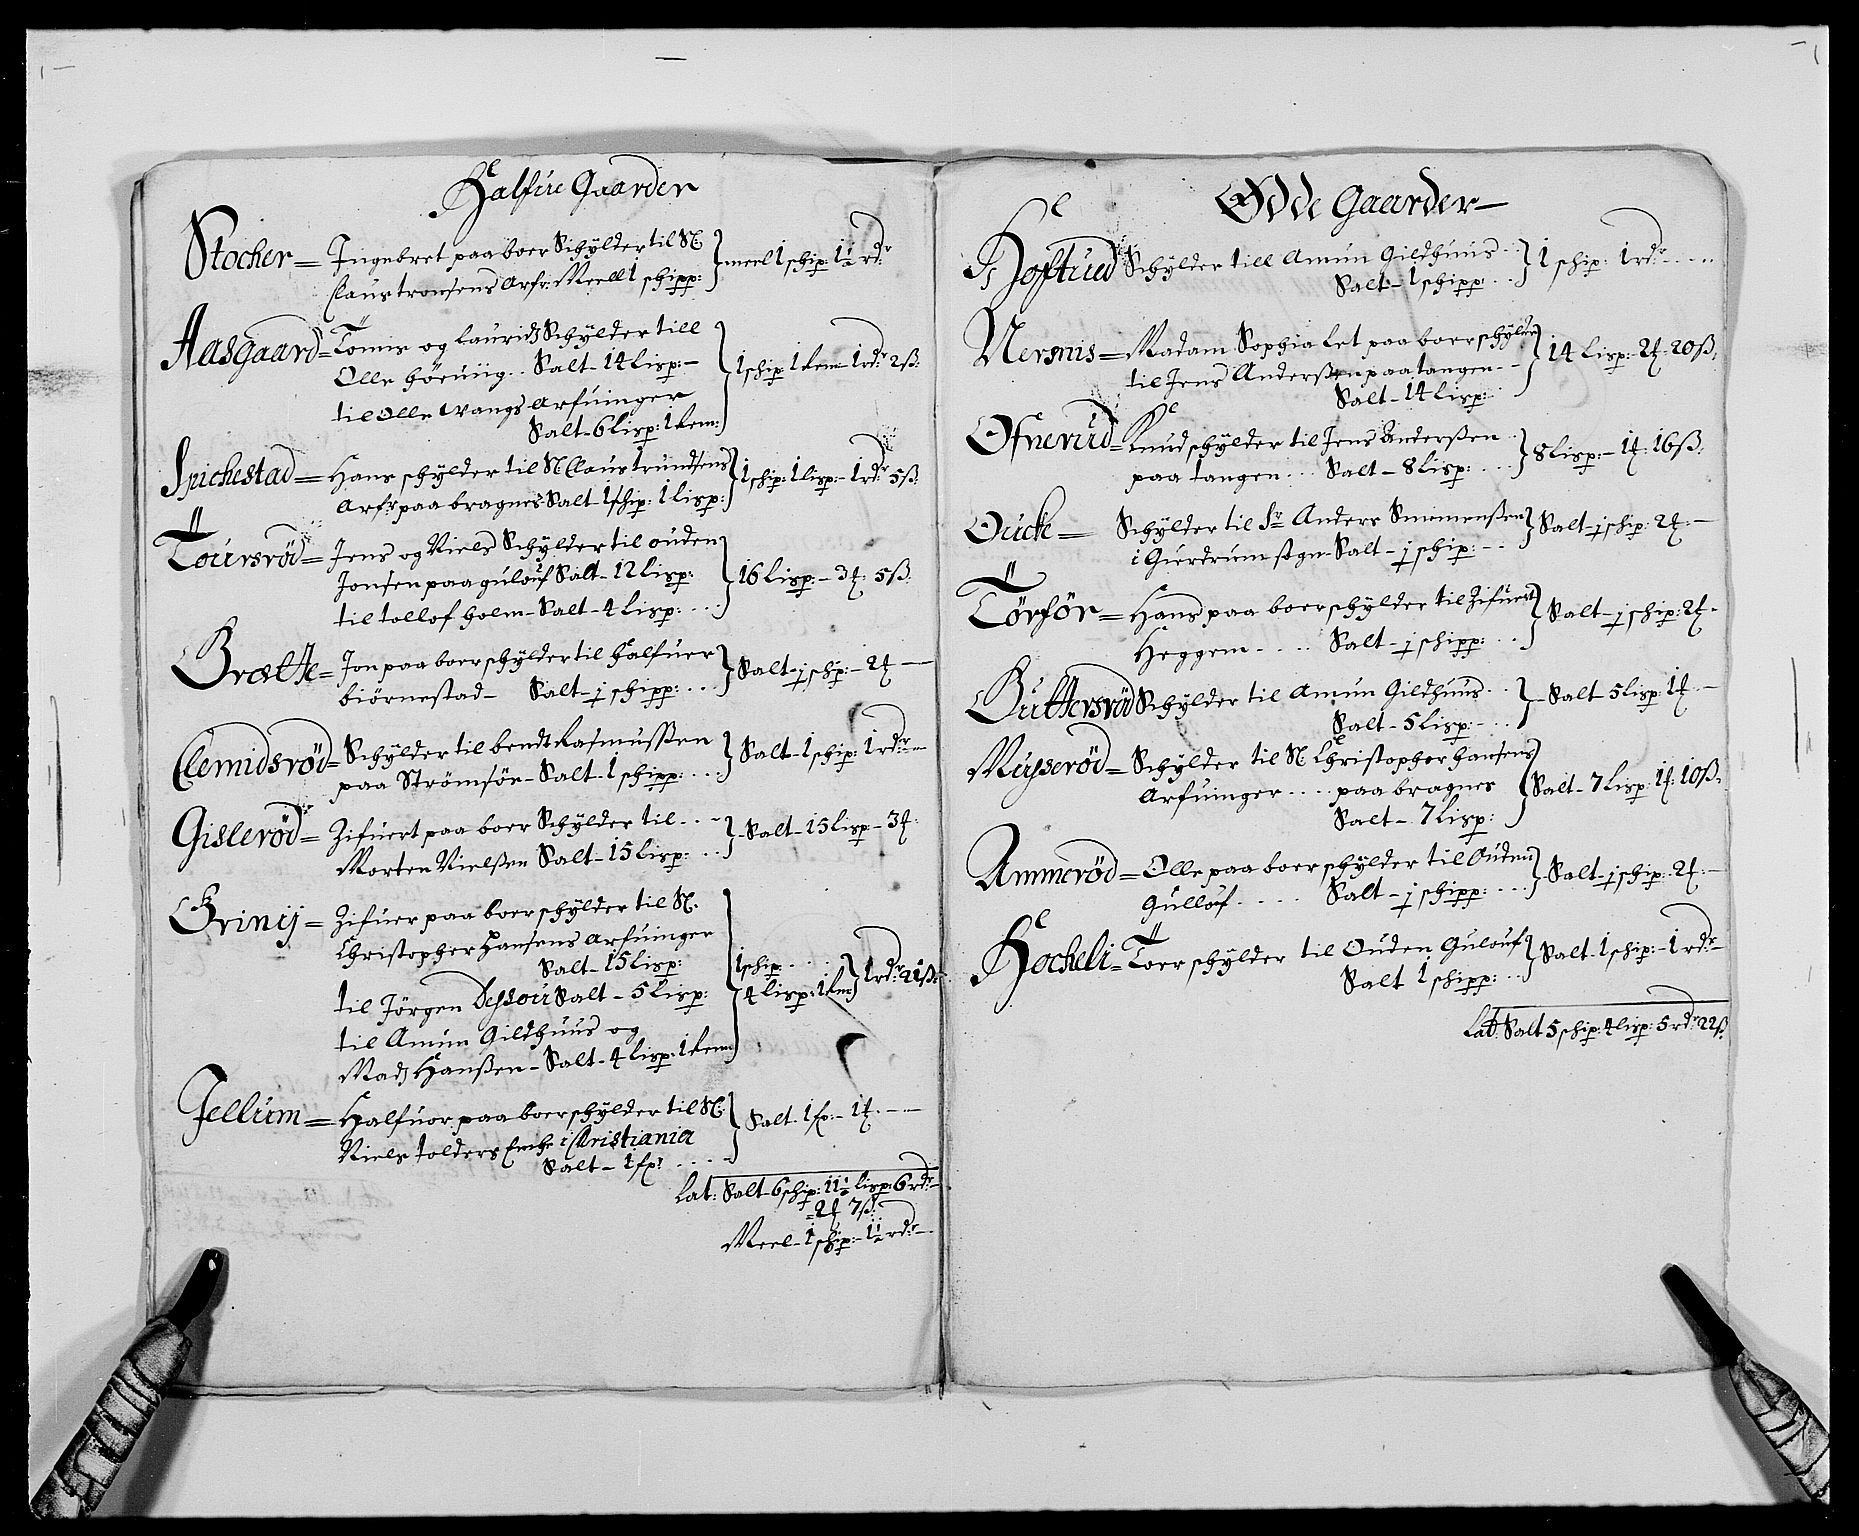 Halfue Gaarder
Stocher = Ingebret paa boer Schylder til Sl.
Claus tronsens Arfr: Meell 1 schipp: } meel 1 schip: 1½ rdr
Aasgaard = Tönnis og Lauridz Schylder till
Olle höeuiig .. Salt - 14 lisp: -
til Olle Wangs Arfuinger
Salt - 6 Lisp: 1 Rem: } 1 schip 1 Rem - 1 rdr 2 ß:
Spichestad = Hans schylder til Sl Claus trundsens
Arfr: paa bragnes Salt 1 schip: 1 lisp: } 1 schip: 1 lisp: - 1 rdr 5 ß
Toursrød = Jens og Niels Schylder til ouden
Jonsen paa gulouf Salt - 12 Lisp:
til tollof holm - Salt - 4 lisp: .... } 16 lisp: - 3 ꝷ: 5 ß
Brætte = Jon paa boer schylder til halfuer
biörnestad - Salt - j schipp: ... } Salt - j schip: - 2 ꝷ —
Clemidsrød = Schylder til bendt Rasmussen
paa Strömsöe - Salt - 1 schipp: ... } Salt - 1 schip: 1 rdr —
Gislerød = Zifuert paa boer Schylder til ...
Morten Nielßen Salt - 15 lisp: .. } Salt - 15 lisp - 3 ꝷ:
Grinij = Zifuer paa boer schylder til Sl.
Christopher Hansens arfuinger
Salt - 15 lisp:
til Jörgen Salt - 5 lisp:
til Amun Gildhuus og
Madz Hanßen - Salt - 4 lisp: 1 Rem: } 1 schip ....
4 lisp: 1 Rm } 1 rdr 21 ß
Jellum = Halfuor paa boer schylder til Sl:
Niels tolders Encke i Christiania
Salt - 1 fp: .... } Salt 1 fp: - 1 ꝷ: —
Lat: Salt - 6 schip: 11½ lisp: 6 rdr —
2 ꝷ 7 ß:
Meel - 1 schip: - 1½ rdr —
Ødde Gaarder —
Hoftued Schylder till Amun Gildhuus ..
Salt - 1 schipp: .. } 1 schip: 1 rdr ....
Nersnis = Madam Sophia let paa boer schylder
til Jens Anderßen paa tangen - -
Salt - 14 lisp: } 14 lisp: 2 ꝷ: 20 ß:
Ofnerud = Knud schylder til Jens Anderßen ..
paa tangen ... Salt - 8 lisp: .... } 8 lisp: - 1 ꝷ: 16 ß.
Oucke = Schylder til Sr Anders Simmenßen
i Gierdrum sogn - Salt - j schip: - .. } Salt - j schip: 2 ꝷ: —
Törför = Hans paa boer schylder til Zifuert
Heggem .... Salt - j schipp: ... } Salt - j schip: 2 ꝷ -
Guttersrød Schylder til Amun Gildhuus ..
Salt - 5 lisp: ... } Salt 5 lisp: 1 ꝷ —
Muyserød = Schylder til Sl Christopher hansens
Arfuinger .... paa bragnes
Salt - 7 lisp: } Salt - 7 lisp: 1 ꝷ: 10 ß.
Ammerød = Olle paa boer schylder til Ouden
Gullouf ..... Salt - j schipp: .... } Salt - j schip: 2 ꝷ: —
Hocheli = Toer schylder til Ouden Gulouf
Salt 1 schipp: ... } Salt 1 schip: - 1 rdr —
Lat: Salt 5 schip: 4 lisp: 5 rdr 22 ß